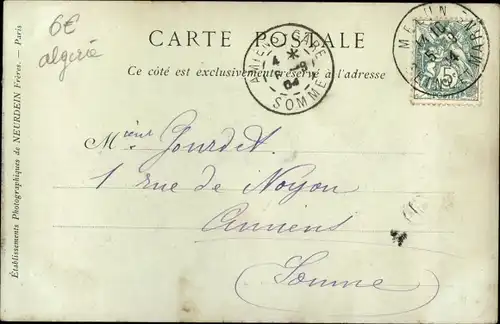 6€
algérie
CARTE POSTALE
Ce côté est exclusivement réservé à l'adresse
AMIENS GARE
SOMME
MELUN
5c
Mr Jourdet.
1 rue de Noyon
Amiens
Somme
Établissements Photographiques de NEURDEIN Frères. — Paris